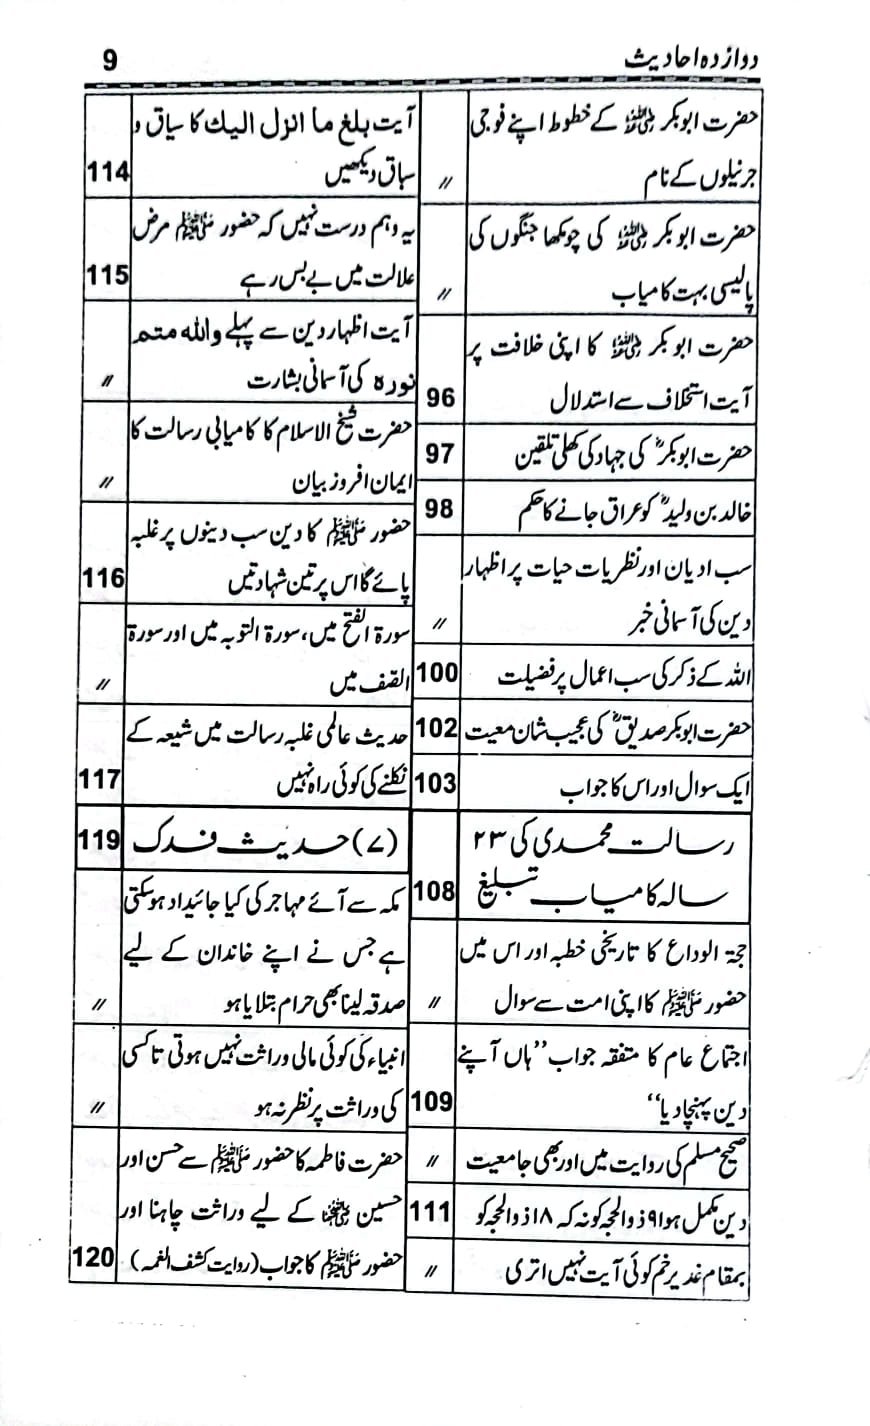 دوازدہ احادیث
9
حضرت ابوبکر رضی اللہ عنہ کے خطوط اپنے فوجی
جرنیلوں کے نام
//
حضرت ابوبکر رضی اللہ عنہ کی چومکھا جنگوں کی
پالیسی بہت کامیاب
//
حضرت ابوبکر رضی اللہ عنہ کا اپنی خلافت پر
آیت استخلاف سے استدلال
96
حضرت ابوبکرؓ کی جہاد کی کھلی تلقین
97
خالد بن ولیدؓ کو عراق جانے کا حکم
98
سب ادیان اور نظریات حیات پر اظہار
دین کی آسمانی خبر
//
اللہ کے ذکر کی سب اعمال پر فضیلت
100
حضرت ابوبکر صدیقؓ کی عجیب شان معیت
102
ایک سوال اور اس کا جواب
103
رسالت محمدی کی ۲۳
سالہ کامیاب تبلیغ
108
حجۃ الوداع کا تاریخی خطبہ اور اس میں
حضور ﷺ کا اپنی امت سے سوال
//
اجتماع عام کا متفقہ جواب ’’ہاں آپنے
دین پہنچا دیا‘‘
109
صحیح مسلم کی روایت میں اور بھی جامعیت
//
دین مکمل ہوا ۹ ذوالحجہ کو نہ کہ ۱۸ ذوالحجہ کو
111
بمقام غدیر خم کوئی آیت نہیں اتری
//
آیت بلغ ما انزل الیك کا سیاق و
سباق دیکھیں
114
یہ وہم درست نہیں کہ حضور ﷺ مرض
علالت میں بے بس رہے
115
آیت اظہار دین سے پہلے واللہ متم
نورہ کی آسمانی بشارت
//
حضرت شیخ الاسلام کا کامیابی رسالت کا
ایمان افروز بیان
//
حضور ﷺ کا دین سب دینوں پر غلبہ
پائے گا اس پر تین شہادتیں
116
سورۃ الفتح میں، سورۃ التوبہ میں اور سورۃ
الصف میں
//
حدیث عالمی غلبہ رسالت میں شیعہ کے
نکلنے کی کوئی راہ نہیں
117
(۷) حدیث فدک
119
مکہ سے آئے مہاجر کی کیا جائیداد ہو سکتی
ہے جس نے اپنے خاندان کے لیے
صدقہ لینا بھی حرام بتلایا ہو
//
انبیاء کی کوئی مالی وراثت نہیں ہوتی تا کسی
کی وراثت پر نظر نہ ہو
//
حضرت فاطمہ کا حضور ﷺ سے حسن اور
حسین رضی اللہ عنہما کے لیے وراثت چاہنا اور
حضور ﷺ کا جواب (روایت کشف الغمہ)
120